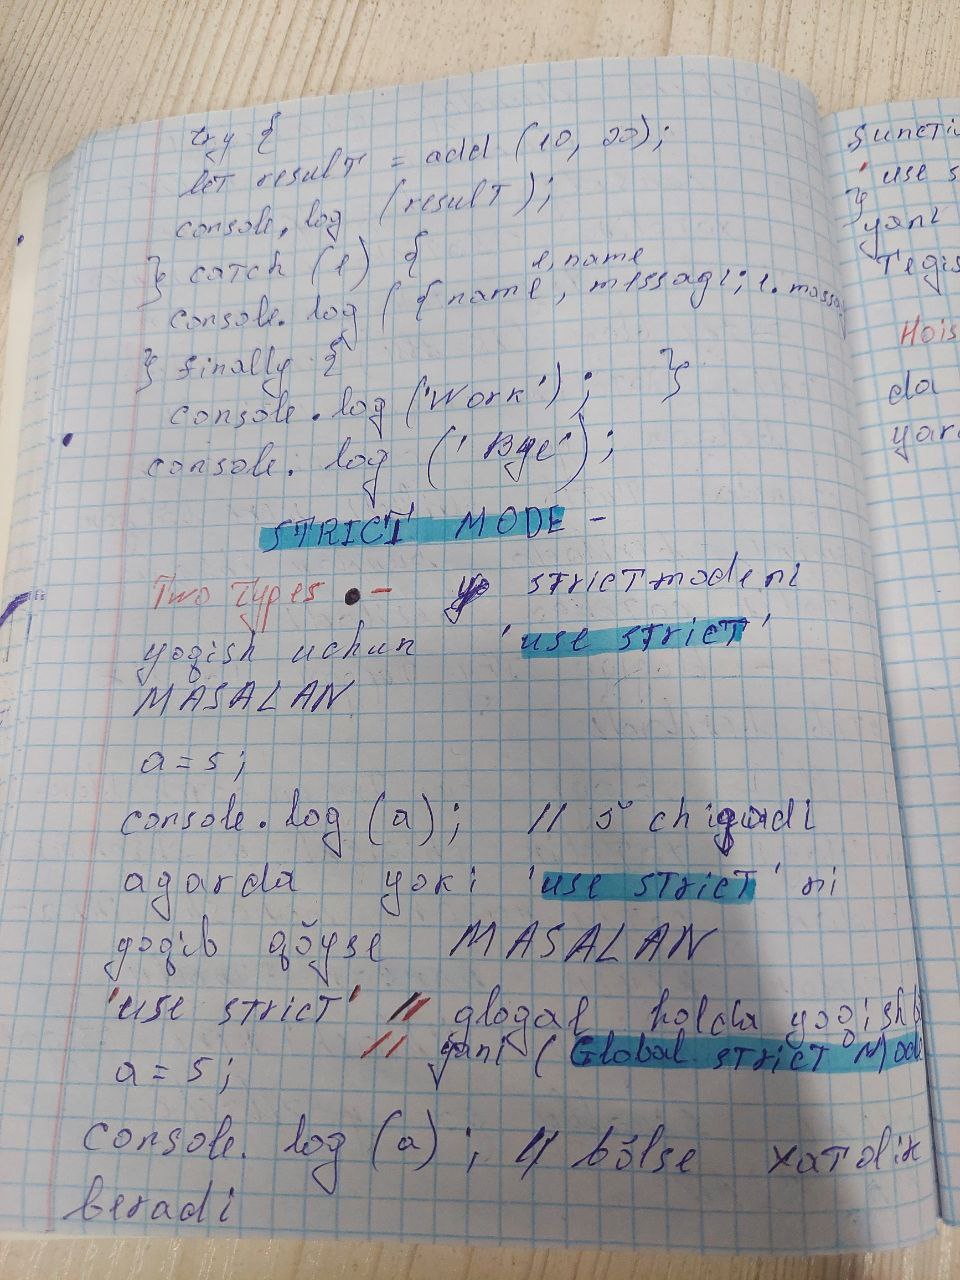 try {
let result = add (10, 20);
console.log (result);
} catch (e) {
e.name
console.log ({ name, message; e.massag
} finally {
console.log ('Work'); }
console.log ('Bye');
STRICT MODE -
Two Types - strict modeni
yoqish uchun 'use strict'
MASALAN
a = 5;
console.log (a); // 5 chiqadi
agarda yoki 'use strict' ni
yoqib qŏyse MASALAN
'use strict' // glogal holda yoqish
// yani (Global strict Mode
a = 5;
console.log (a); // bŏlse xatolik
beradi
functi
'use s
}
yani
Tegis
Hois
da
yar